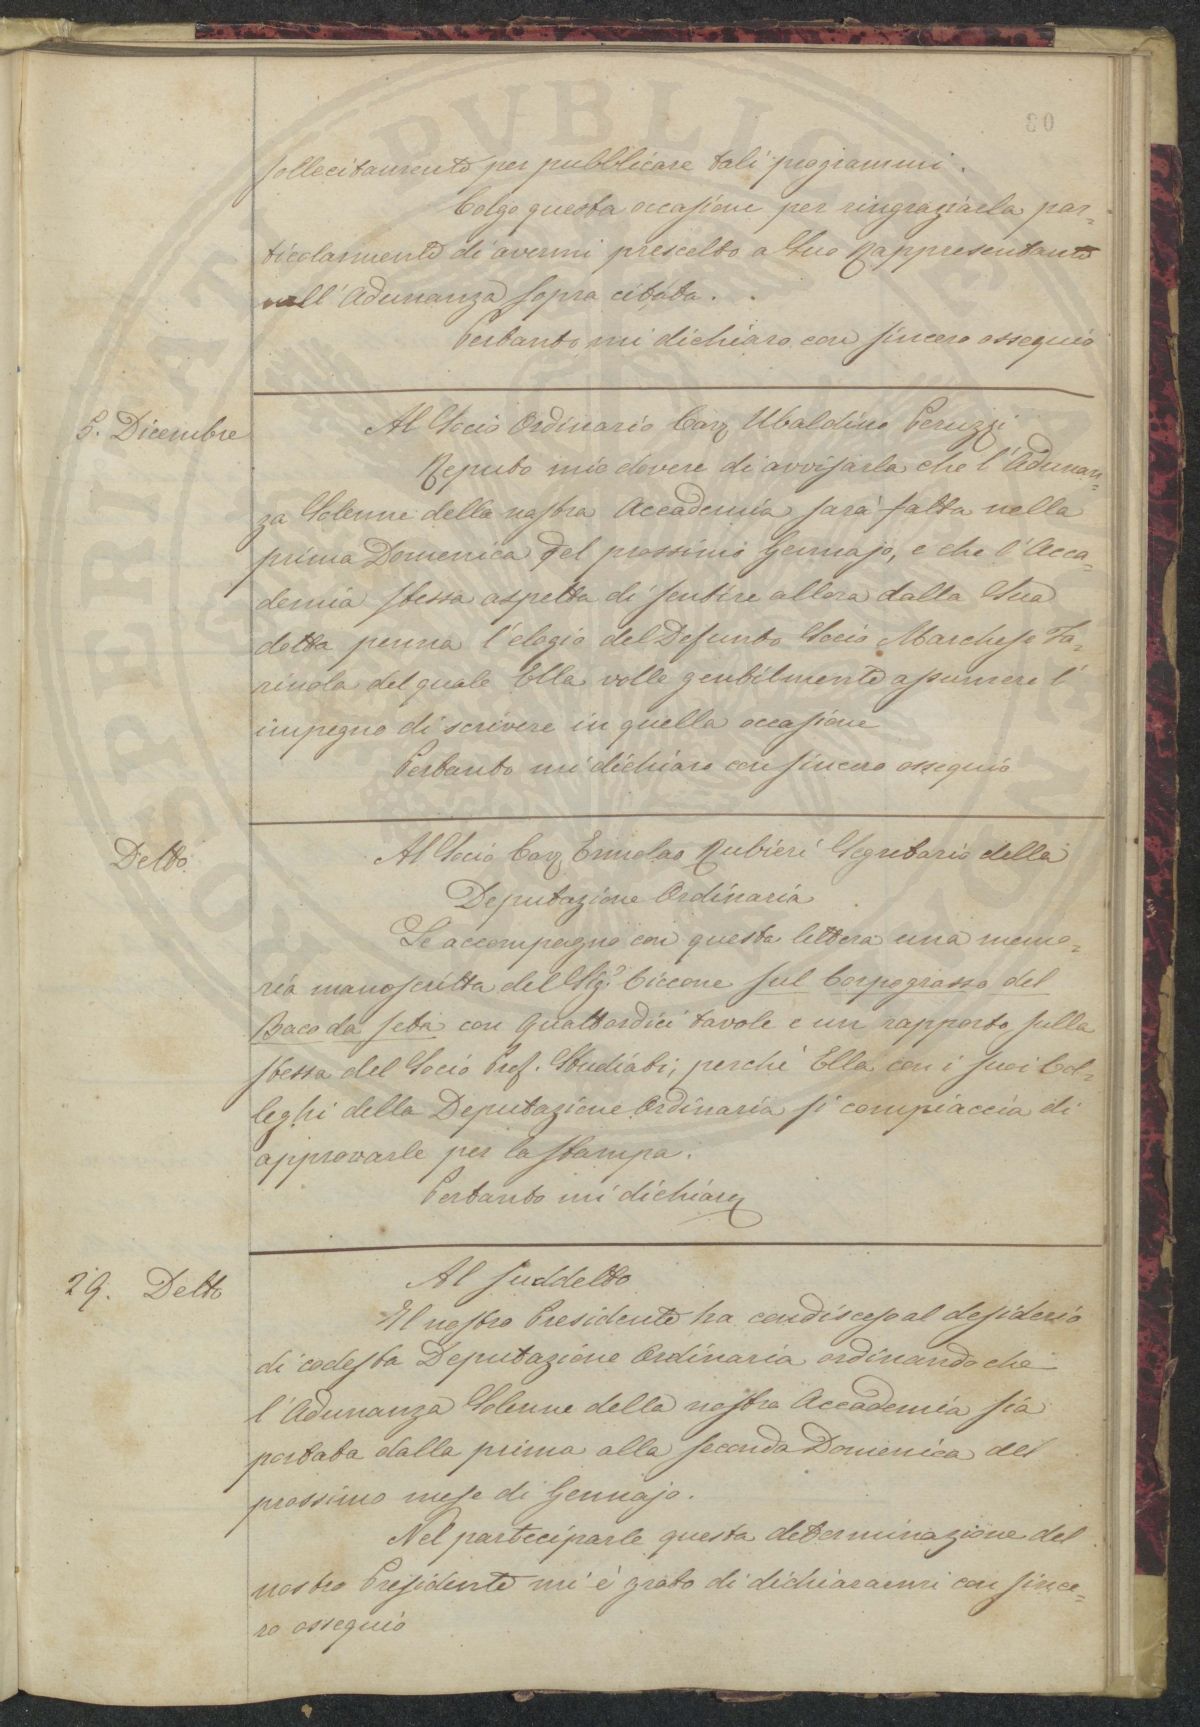 sollecitamente per pubblicare tali programmi.
Colgo questa occasione per ringraziarla par=
ticolarmente di avermi prescelto a Suo Rappresentante
nell'Adunanza sopra citata.
Pertanto mi dichiaro con sincero ossequio
5. Dicembre
Al Socio Ordinario Cav Ubaldino Peruzzi
Reputo mio dovere di avvisarla che l'Adunan=
za Solenne della nostra Accademia sarà fatta nella
prima Domenica del prossimo Gennajo, e che l'Acca=
demia stessa aspetta di sentire allora dalla Sua
dotta penna l'elogio del Defunto Socio Marchese Fa=
rinola del quale Ella volle gentilmente assumere l'
impegno di scrivere in quella occasione
Pertanto mi dichiaro con sincero ossequio
Detto
Al Socio Cav Ermolao Rubieri Segretario della
Deputazione Ordinaria
Le accompagno con questa lettera una memo=
ria manoscritta del Sigr. Ciccone sul Corpograsso del
Baco da seta con quattordici tavole e un rapporto sulla
stessa del Socio Prof. Studiati; perchè Ella con i suoi Col=
leghi della Deputazione Ordinaria si compiaccia di
approvarle per la stampa.
Pertanto mi dichiaro
29. Detto
Al suddetto
Il nostro Presidente ha condisceso al desiderio
di codesta Deputazione Ordinaria ordinando che
l'Adunanza Solenne della nostra Accademia sia
portata dalla prima alla seconda Domenica del
prossimo mese di Gennajo.
Nel parteciparle questa determinazione del
nostro Presidente mi è grato di dichiararmi con since=
ro ossequio